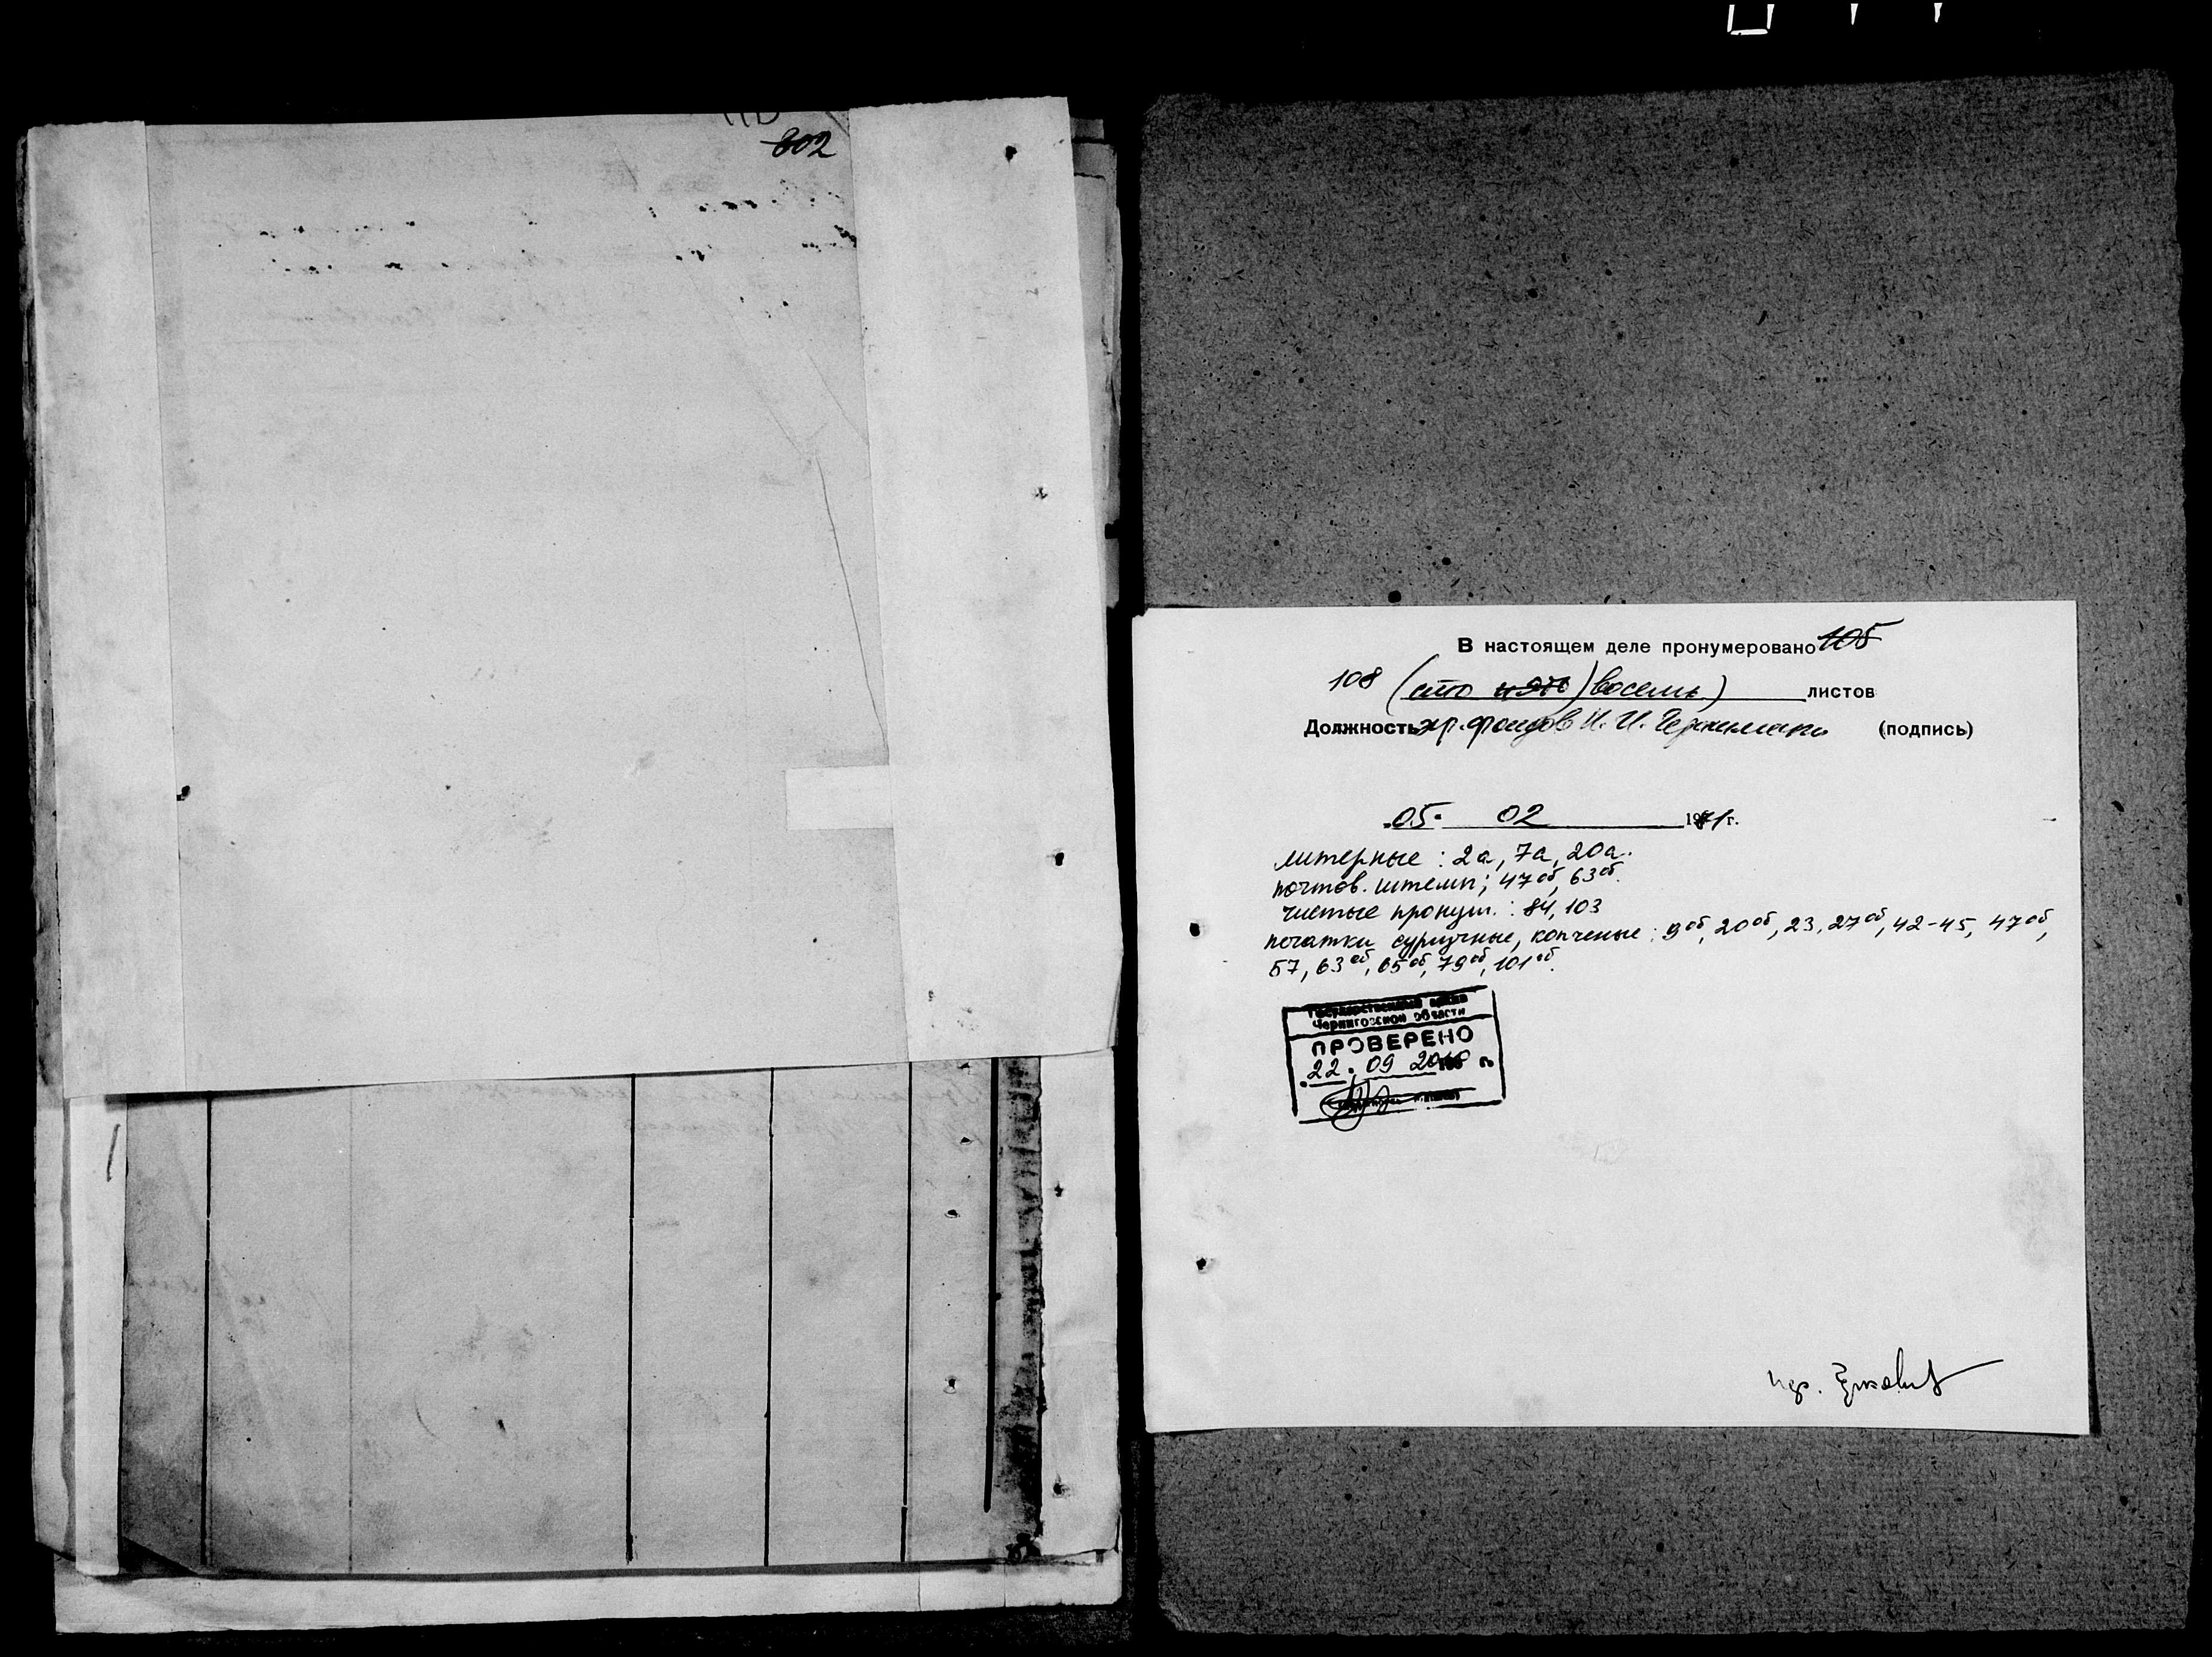 802
В настоящем деле пронумеровано 105
108 (сто пять) восемь) листов
Должность хр. фондов И. И. (подпись)
"05" 02 1981 г.
литерные: 2а, 7а, 20а.
почтов. штемп; 47об, 63об.
чистые пронум.: 84, 103
печатки сургучные, копченые: 9об, 20об, 23, 27об, 42-45, 47об,
57, 63об, 65об, 79об, 101об.
Государственный архив
Черниговской области
ПРОВЕРЕНО
"22" 09 2010 г.